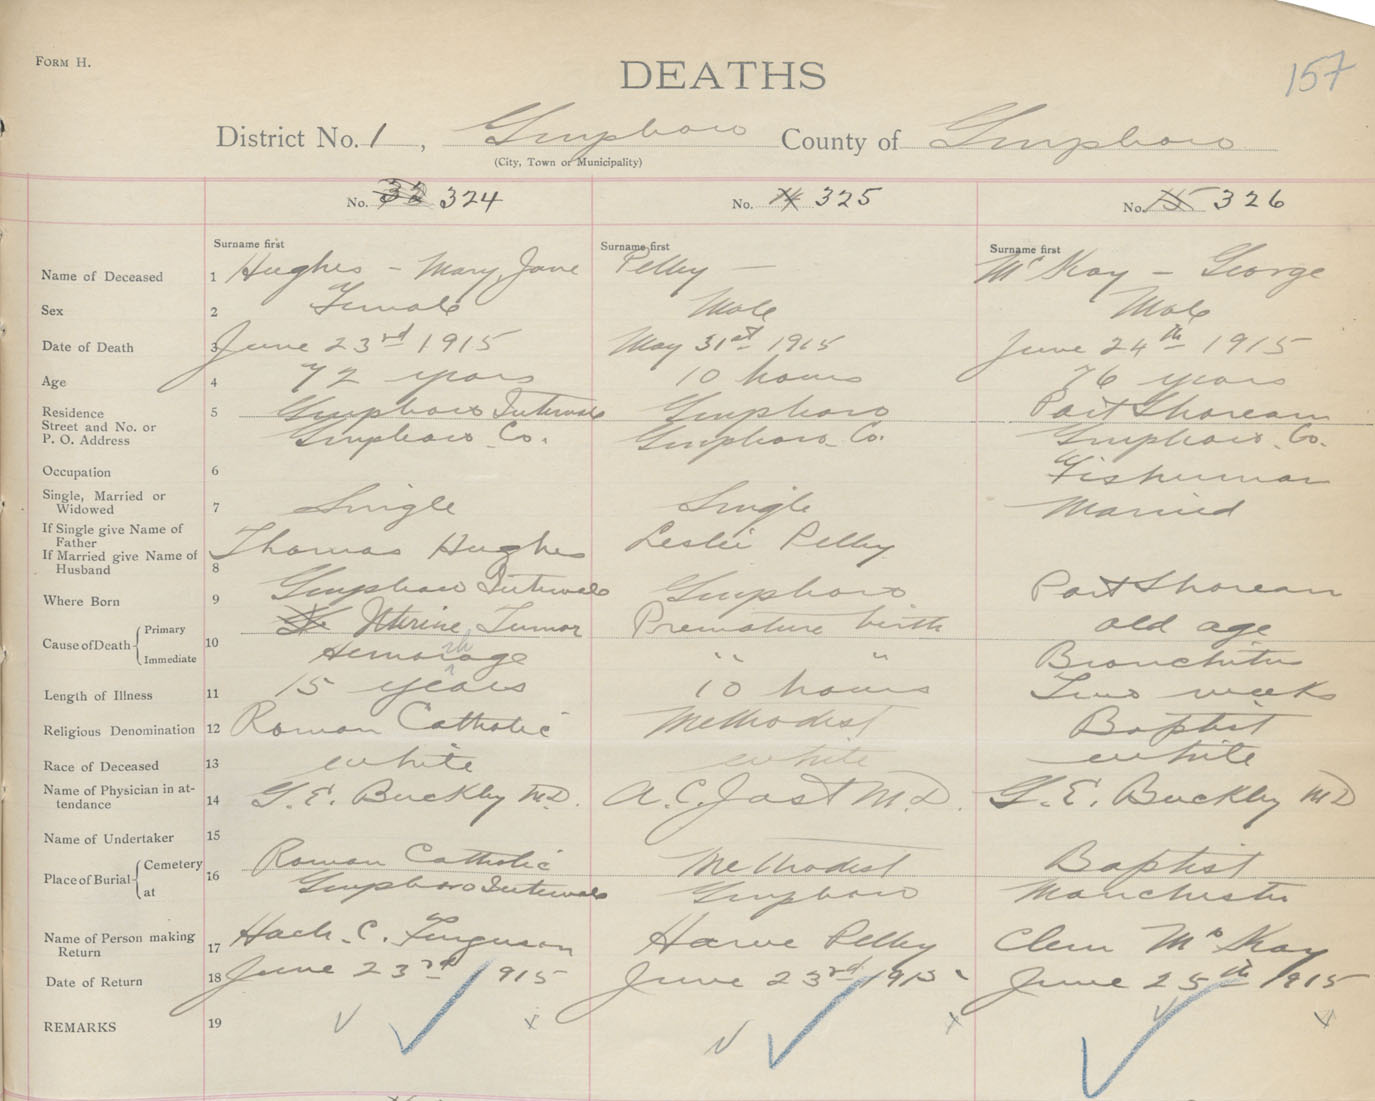 FORM H.
DEATHS
157
District No. 1, Guysboro County of Guysboro
(City, Town or Municipality)
No. 324
No. 325
No. 15 326
Surname first
Surname first
Surname first
Name of Deceased 1 Hughes - Mary Jane
Pelley -
McKay - George
Sex 2 Female
Male
Male
Date of Death 3 June 23rd 1915
May 31st 1915
June 24th 1915
Age 4 72 years
10 hours
76 years
Residence 5 Guysboro Intervale
Guysboro
Port Shoream
Street and No. or
P. O. Address
Guysboro Co.
Guysboro Co.
Guysboro Co.
Occupation 6
Fisherman
Single, Married or
Widowed 7 Single
Single
Married
If Single give Name of
Father
If Married give Name of
Husband 8
Thomas Hughes
Leslie Pelley
Where Born 9 Guysboro Intervale
Guysboro
Port Shoream
Cause of Death Primary 10 Uterine Tumor
Premature birth
old age
Immediate Hemorrhage
" "
Bronchitis
Length of Illness 11 15 years
10 hours
Two weeks
Religious Denomination 12 Roman Catholic
Methodist
Baptist
Race of Deceased 13 white
white
white
Name of Physician in at-
tendance 14 G. E. Buckley M.D.
A. C. Jost M.D.
G. E. Buckley MD
Name of Undertaker 15
Place of Burial Cemetery 16 Roman Catholic
Methodist
Baptist
at Guysboro Intervale
Guysboro
Manchester
Name of Person making
Return 17 C. Ferguson
Pelley
Clem McKay
Date of Return 18 June 23rd 1915
June 23rd 1915
June 25th 1915
REMARKS 19